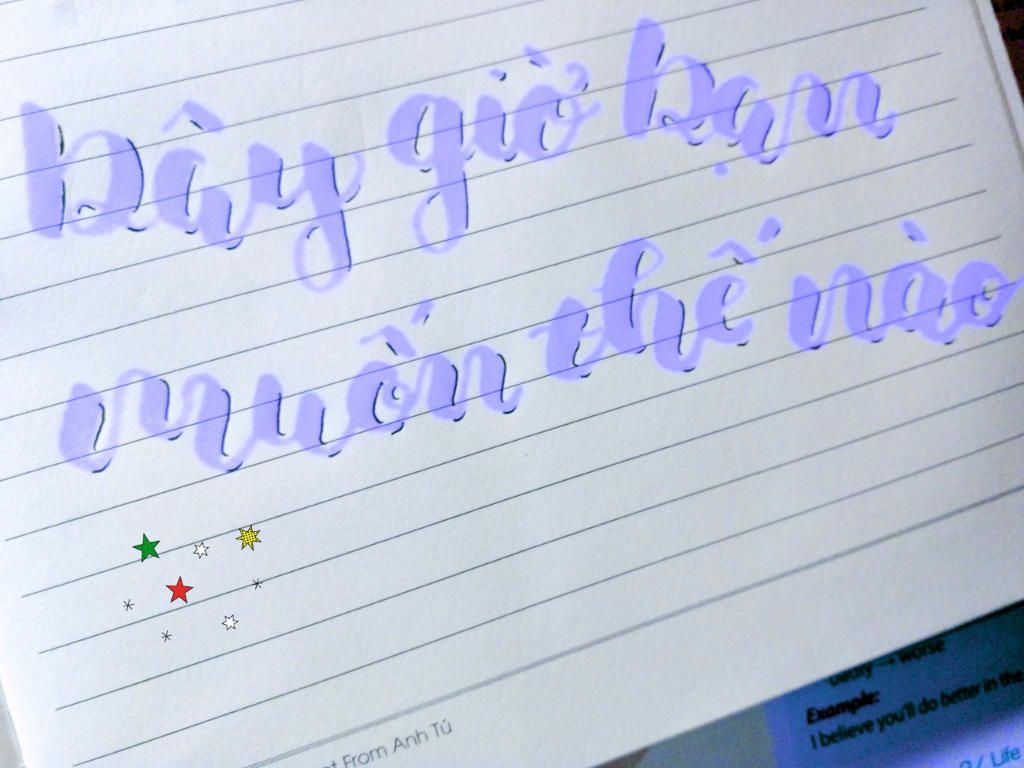 bây giờ bạn
muốn thế nào
From Anh Tú
worse
Example:
I believe you'll do better in the
2/ Life